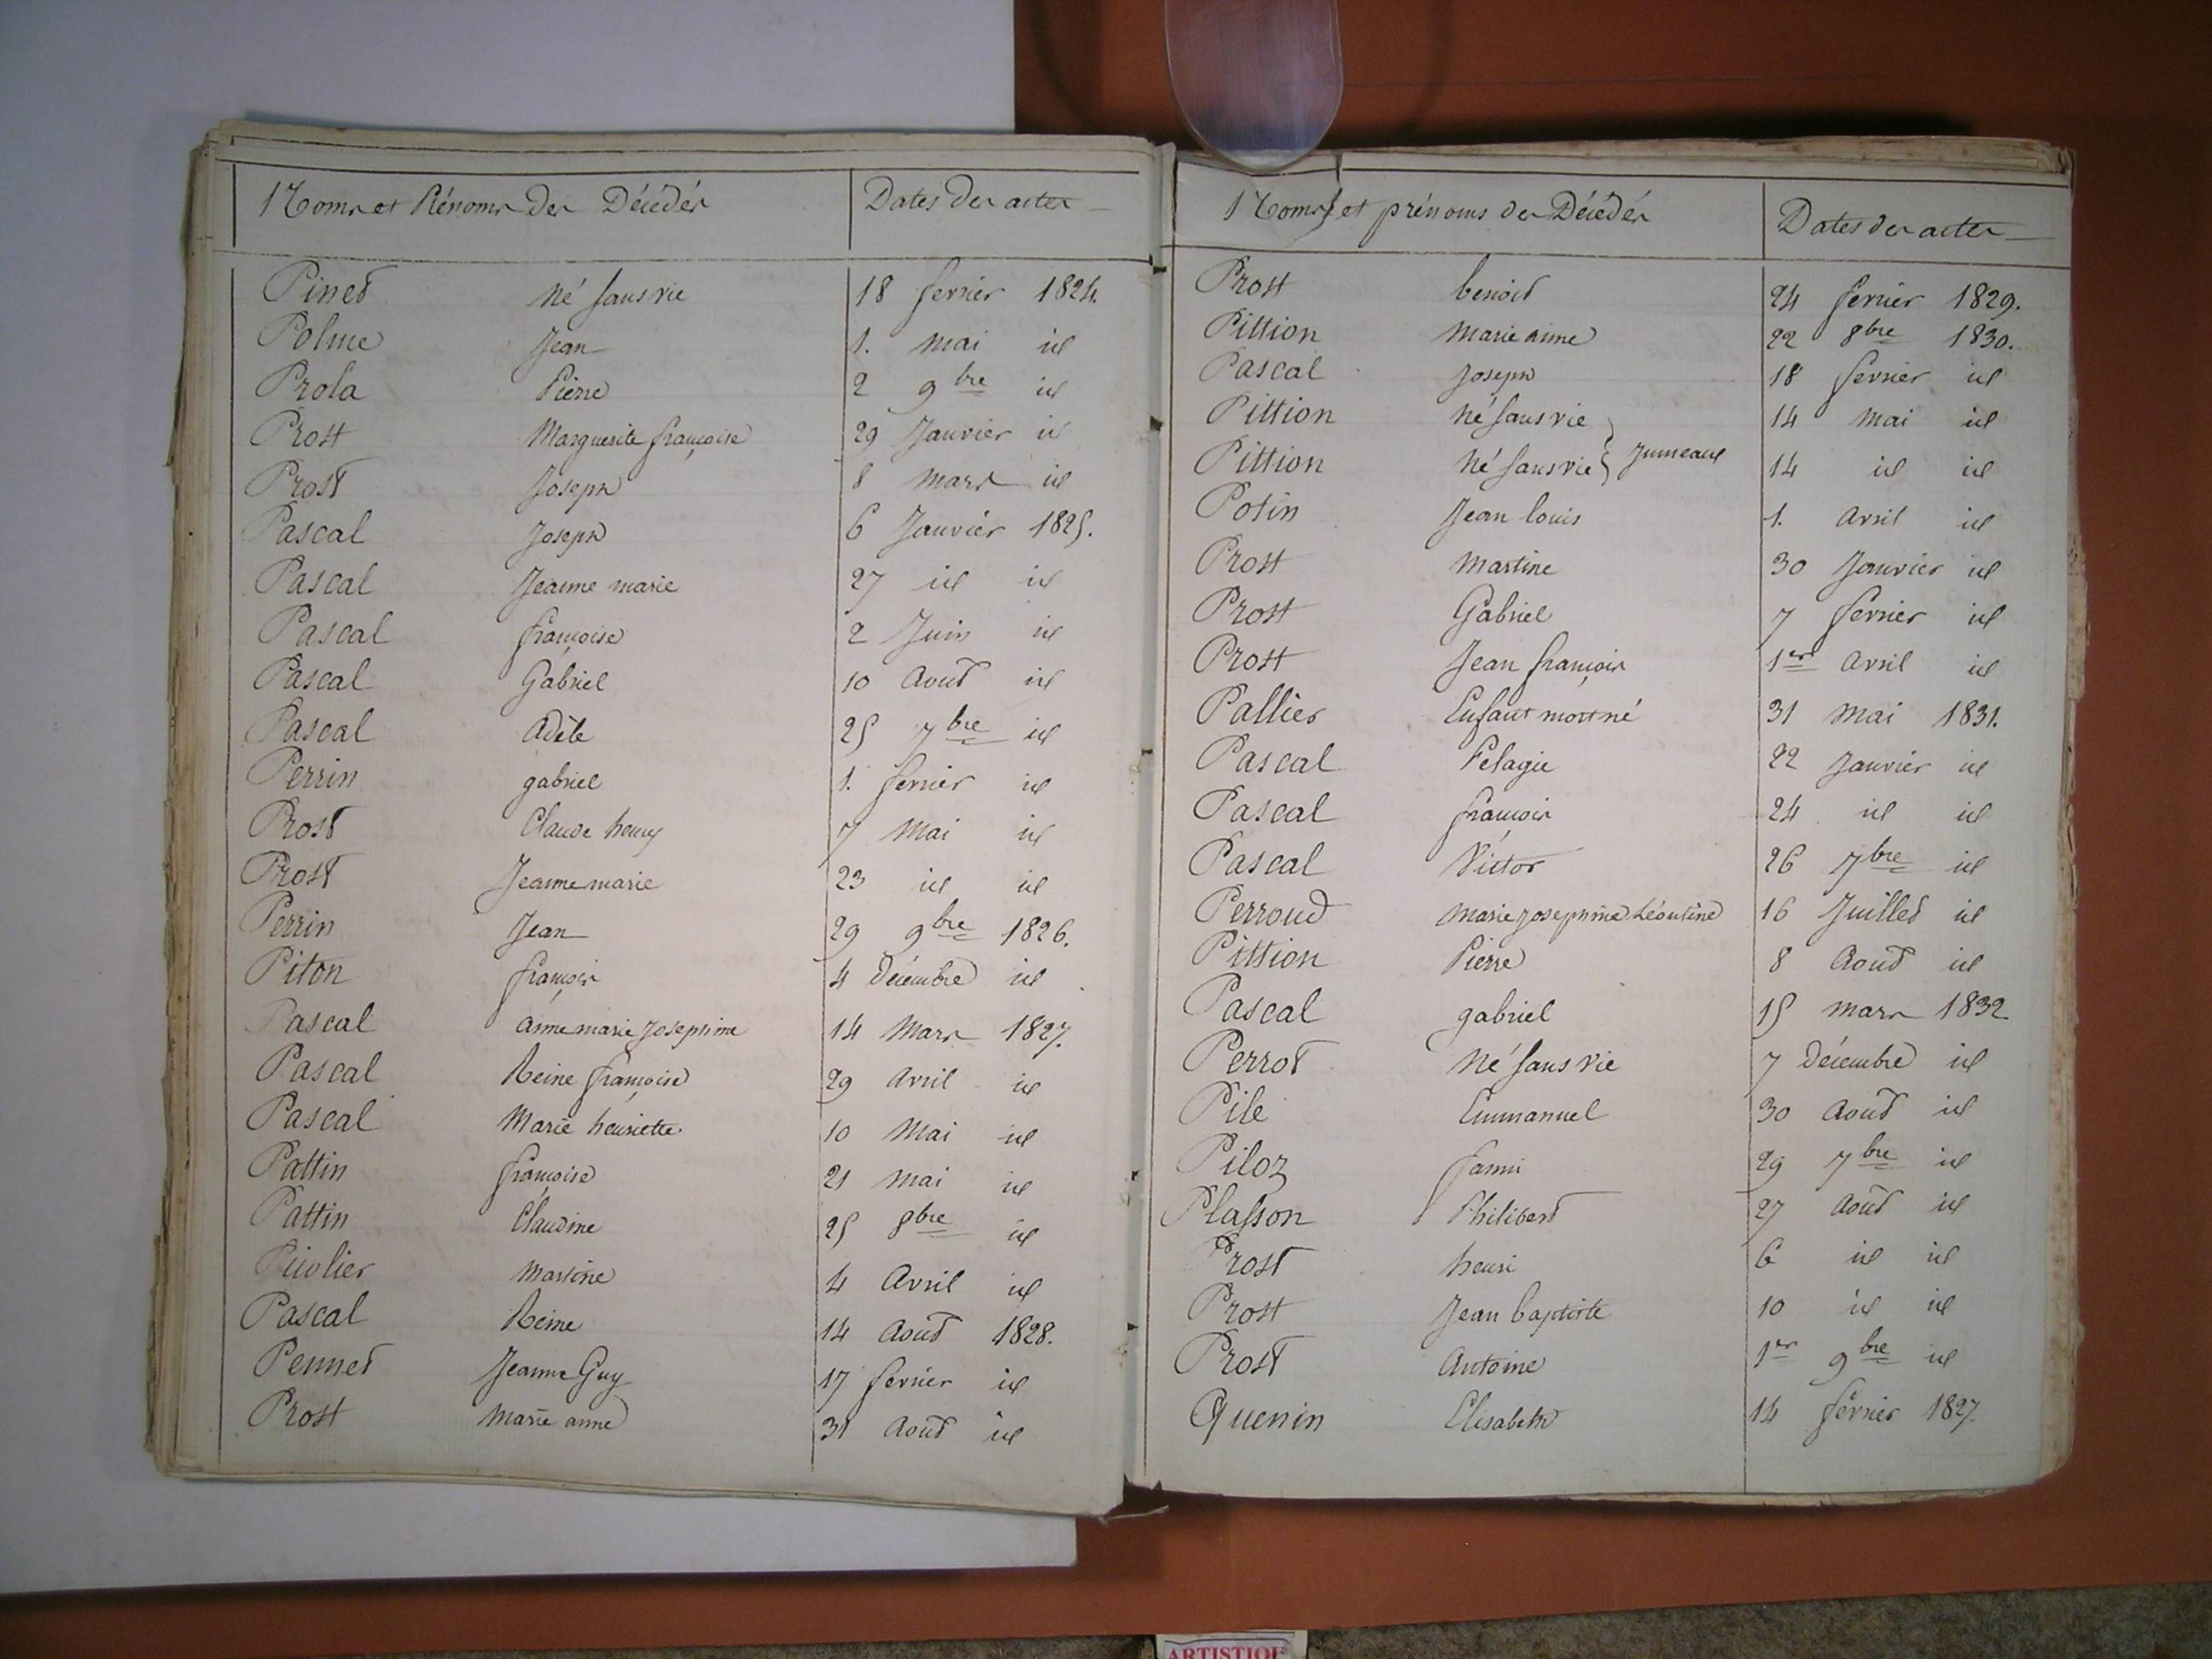 Noms et Prénoms des Décédés Dates des actes
Pinet né sans vie 18 fevrier 1824.
Polme Jean 1. mai id
Prola Pierre 2 9bre id
Prost Marguerite françoise 29 Janvier id
Prost Joseph 8 mars id
Pascal Joseph 6 Janvier 1825.
Pascal Jeanne marie 27 id id
Pascal françoise 2 Juin id
Pascal Gabriel 10 Aout id
Pascal Adèle 25 7bre id
Perrin gabriel 1. fevrier id
Prost Claude henry 7 Mai id
Prost Jeanne marie 23 id id
Perrin Jean 29 9bre 1826.
Piton françois 4 Décembre id
Pascal anne marie Josephine 14 Mars 1827.
Pascal Reine françoise 29 avril id
Pascal Marie henriette 10 Mai id
Pattin françoise 21 mai id
Pattin Claudine 25 8bre id
Martine 4 Avril id
Pascal Reine 14 Aout 1828.
Pennet Jeanne Guy 17 fevrier id
Prost Marie anne 31 Aout id
Noms et prénoms des Décédés Dates des actes
Prost benoit 24 fevrier 1829.
Pittion Marie anne 22 8bre 1830.
Pascal Joseph 18 fevrier id
Pittion né sans vie 14 mai id
Pittion né sans vie Jumeaux 14 id id
Potin Jean louis 1. Avril id
Prost Martine 30 Janvier id
Prost Gabriel 7 fevrier id
Prost Jean françois 1er avril id
Pallier Enfant mort né 31 Mai 1831.
Pascal Pelagie 22 Janvier id
Pascal françois 24 id id
Pascal Victor 26 7bre id
Perroud Marie Josephine Léontine 16 Juillet id
Pittion Pierre 8 Aout id
Pascal gabriel 15 mars 1832
Perrot né sans vie 7 Décembre id
Pile Emmanuel 30 Aout id
Piloz fanni 29 7bre id
Plasson Philibert 27 Aout id
Prost henri 6 id id
Prost Jean baptiste 10 id id
Prost Antoine 1er 9bre id
Quenin Elisabeth 14 fevrier 1827.